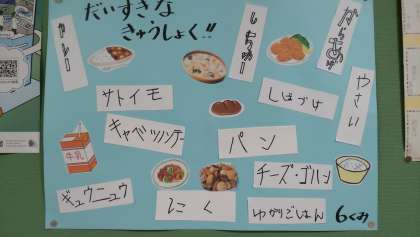 だいすきな
きゅうしょく!!
カレー
しちゅー
からあげ
やさい
サトイモ
しおづけ
キャベツ
パン
牛乳
チーズ・ゴハン
ギュウニュウ
にく
ゆかりごはん
6くみ